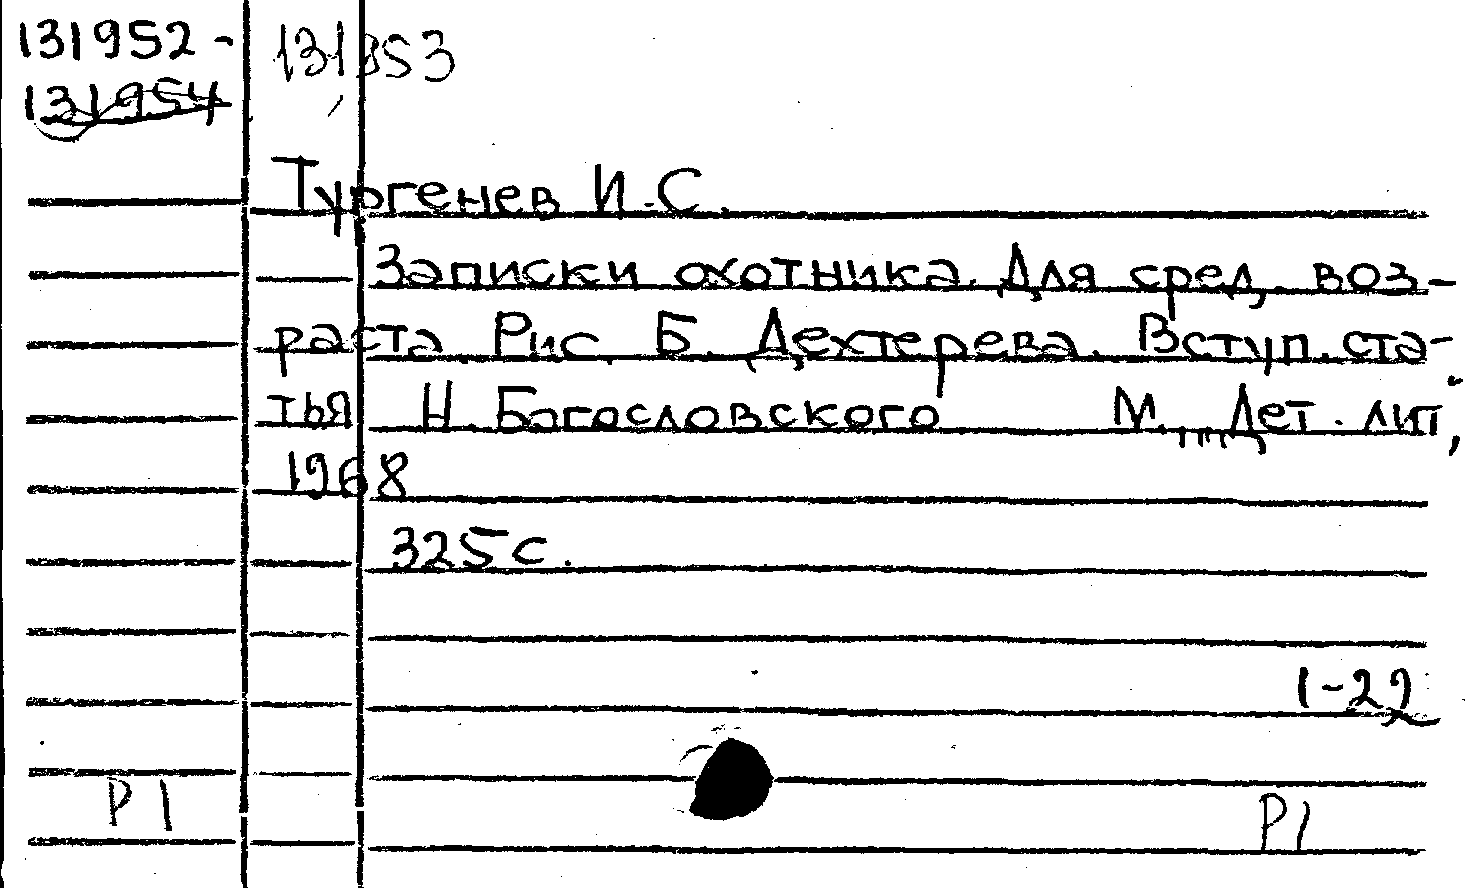 131952- 131953
131954
Тургенев И.С.
Записки охотника. Для сред. воз-
раста Рис. Б. Дехтерева. Вступ. ста-
тья Н. Богословского М., Дет. лит,
1968
325 с.
1-29
Р1 Р1